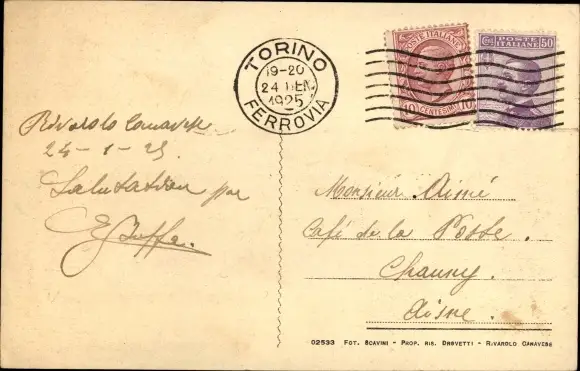 Rivarolo Canavese
24-1-25.
Salutation par
TORINO
19-20
24 GEN
1925
FERROVIA
POSTE ITALIANE
10 CENTESIMI 10
POSTE ITALIANE
Cent 50
Monsieur Aimé
Café de la Poste.
Chauny.
Aisne.
02533 FOT. SCAVINI - PROP. RIS. DROVETTI - RIVAROLO CANAVESE